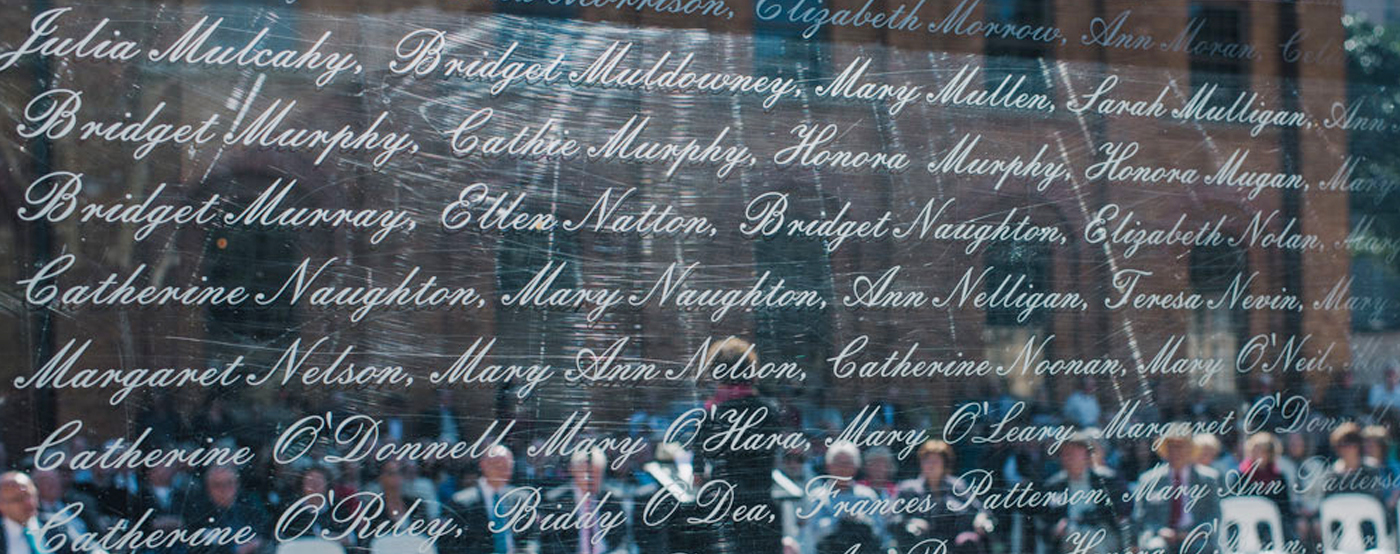 Morrison, Elizabeth Morrow, Ann Moran,
Julia Mulcahy, Bridget Muldowney, Mary Mullen, Sarah Mulligan, Ann
Bridget Murphy, Cathie Murphy, Honora Murphy, Honora Mugan, Mary
Bridget Murray, Ellen Natton, Bridget Naughton, Elizabeth Nolan, Mary
Catherine Naughton, Mary Naughton, Ann Nelligan, Teresa Nevin, Mary
Margaret Nelson, Mary Ann Nelson, Catherine Noonan, Mary O'Neil,
Catherine O'Donnell, Mary O'Hara, Mary O'Leary, Margaret
Catherine O'Riley, Biddy O'Dea, Frances Patterson, Mary Ann